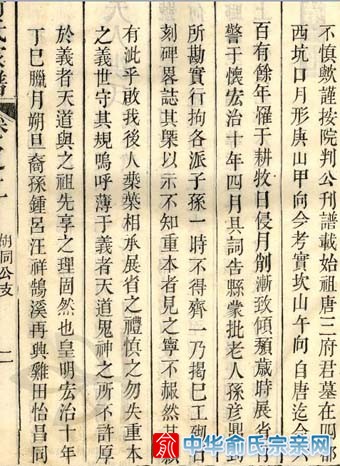 不慎歟謹按院判公刋譜載始祖唐三府君墓在四都
西坑口月形庚山甲向今考實坎山午向自唐迄今六
百有餘年罹于耕牧日侵月削漸致傾頽歲時展省
警于懷宏治十年四月具詞告縣蒙批老人孫彦鼎
所勘實行拘各派子孫一時不得齊一乃揭巳工砌石
刻碑畧誌其槩以示不知重本者見之寧不赧然其
有泚乎啟我後人相承展省之禮慎之勿失重本
之義世守其規嗚呼薄于義者天道鬼神之所不許厚
於義者天道與之祖先享之理固然也皇明宏治十年
丁巳臘月朔旦裔孫鍾呂汪祥鵠溪再興雞田怡昌同
胡同公支 二
俞 中华俞氏宗亲网